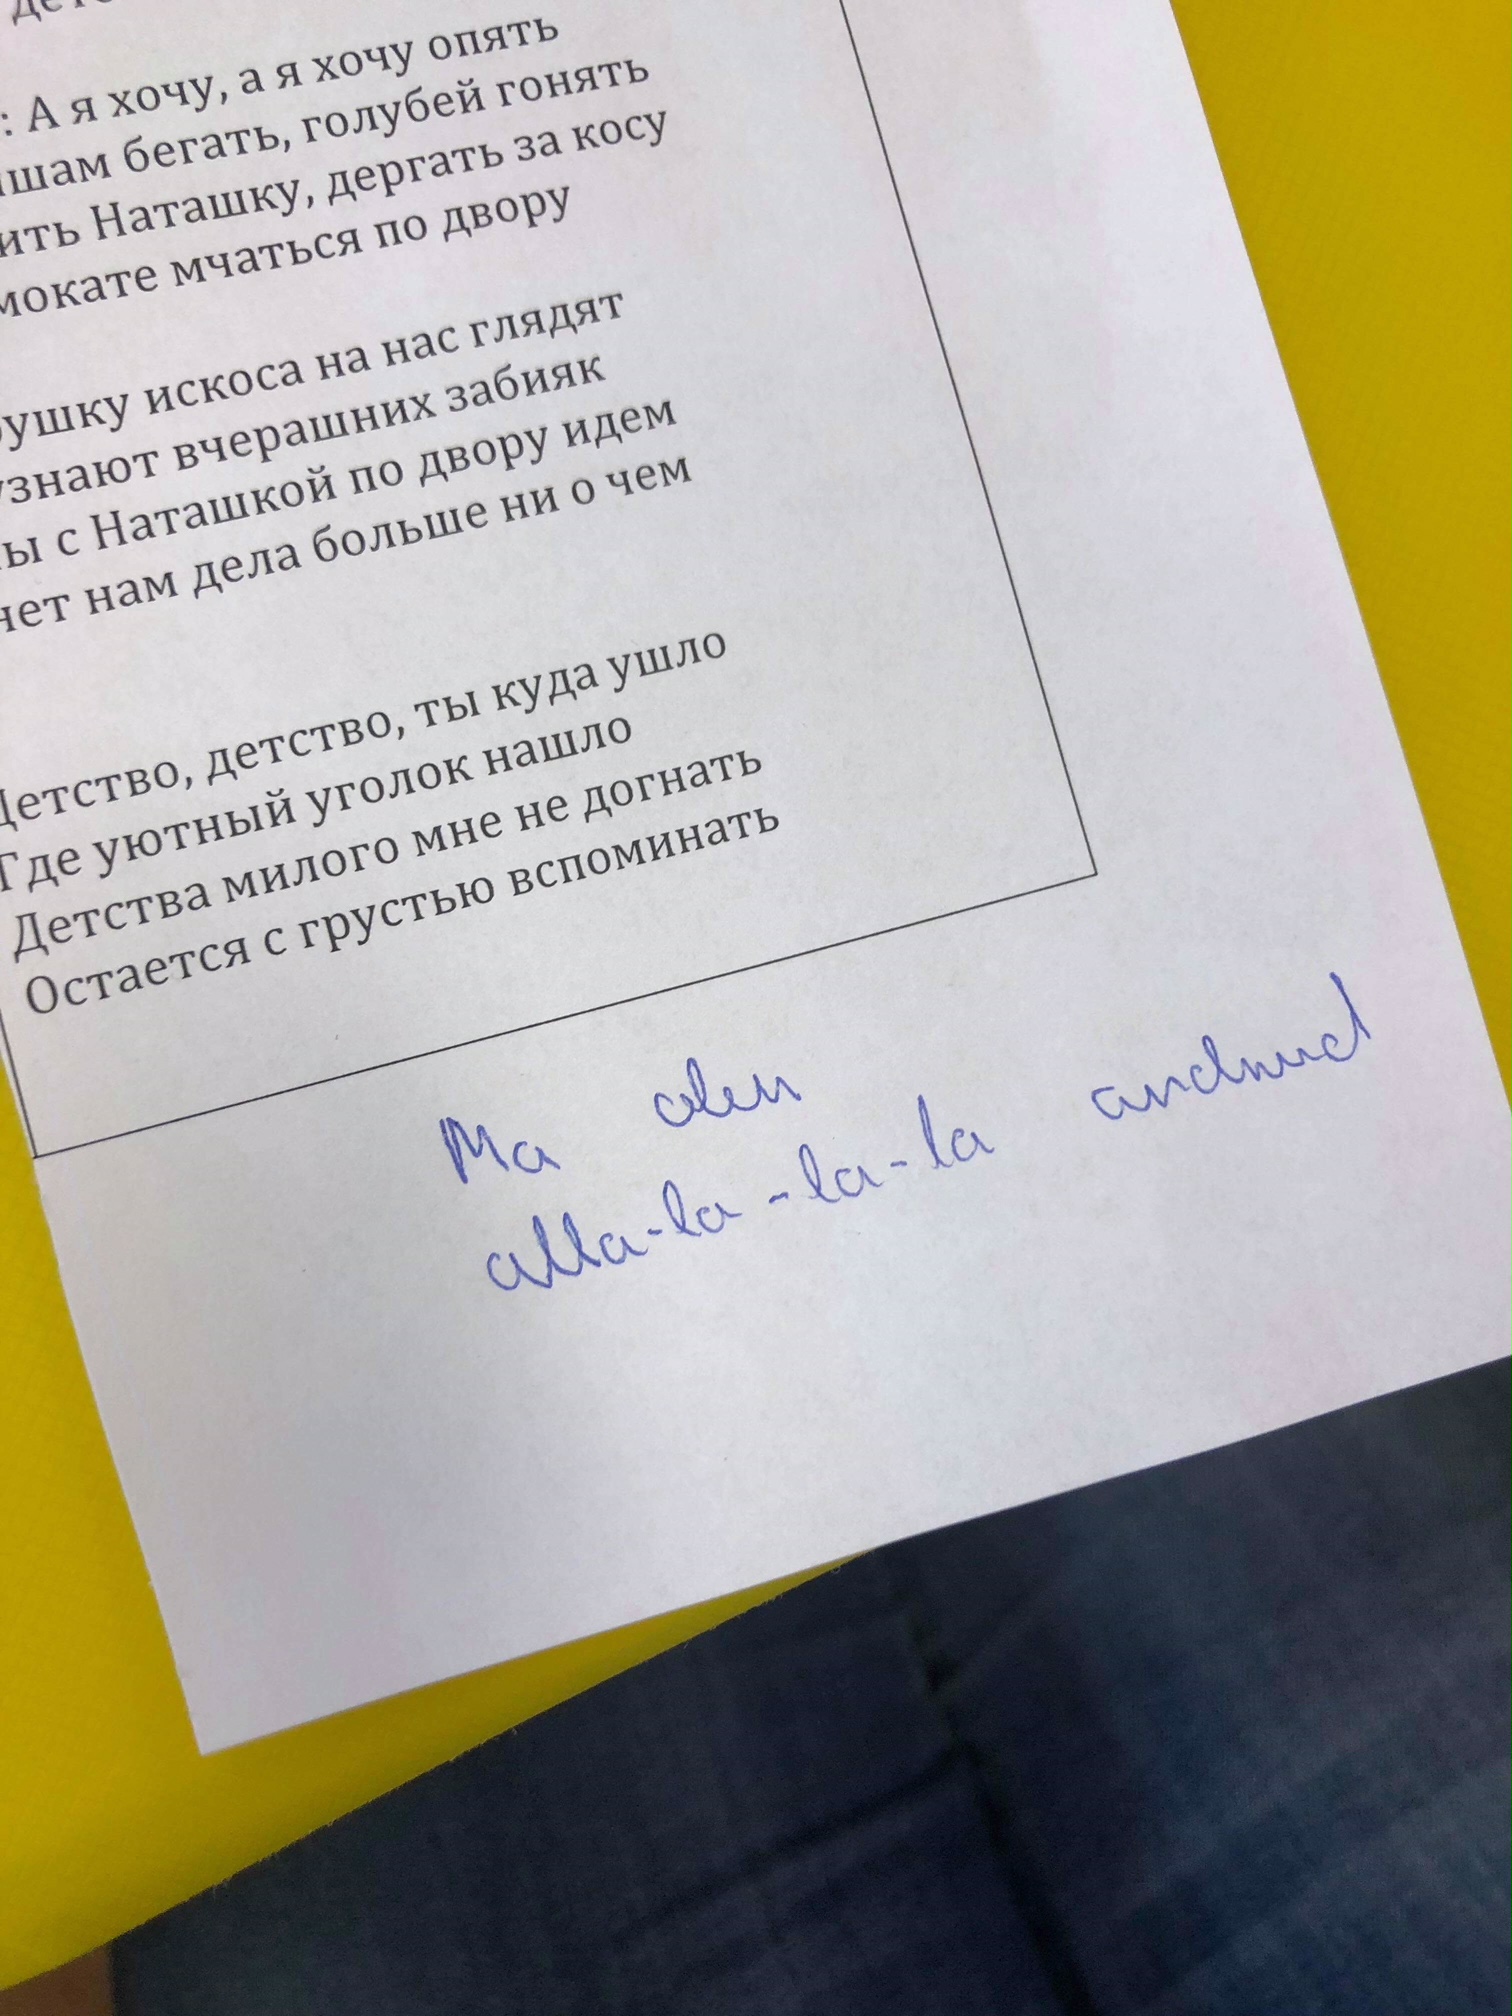 : А я хочу, а я хочу опять
бегать, голубей гонять
Наташку, дергать за косу
мчаться по двору
искоса на нас глядят
вчерашних забияк
с Наташкой по двору идем
нам дела больше ни о чем
Детство, детство, ты куда ушло
Где уютный уголок нашло
Детства милого мне не догнать
Остается с грустью вспоминать
Ma olen
alla-la-la-la andnud